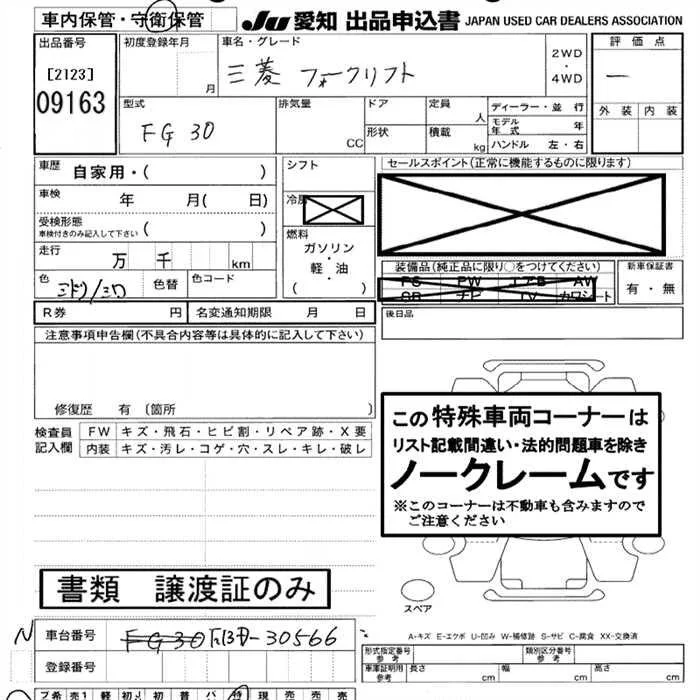 車内保管・守衛保管
JU 愛知 出品申込書 JAPAN USED CAR DEALERS ASSOCIATION
出品番号
[2123]
09163
初度登録年月
月
車名・グレード
三菱 フォークリフト
2WD
・
4WD
評価点
外装 内装
型式
FG30
排気量
CC
ドア
形状
定員
人
積載
kg
ディーラー・並行
モデル年式 年
ハンドル 左・右
車歴
自家用・( )
車検
年 月( 日)
受検形態
車検付きのみ記入して下さい ( )
走行
万 千 km
色
色替
色コード
シフト
燃料
ガソリン
・
軽・油
( )
セールスポイント(正常に機能するものに限ります)
装備品(純正品に限り○をつけてください)
PS PW エアB AW
SR ナビ TV カワシート
新車保証書
有・無
R券 円
名変通知期限 月 日
後日品
注意事項申告欄(不具合内容等は具体的に記入して下さい)
修復歴 有 〔箇所 〕
検査員
記入欄
FW キズ・飛石・ヒビ割・リペア跡・X要
内装 キズ・汚レ・コゲ・穴・スレ・キレ・破レ
この特殊車両コーナーは
リスト記載間違い・法的問題車を除き
ノークレームです
※このコーナーは不動車も含みますので
ご注意ください
スペア
書類 譲渡証のみ
A-キズ E-エクボ U-凹み W-補修跡 S-サビ C-腐食 XX-交換済
N
車台番号
FG30 F13D-30566
登録番号
形式指定番号
参考
類別区分番号
参考
車庫証明用
参考
長さ cm
幅 cm
高さ cm